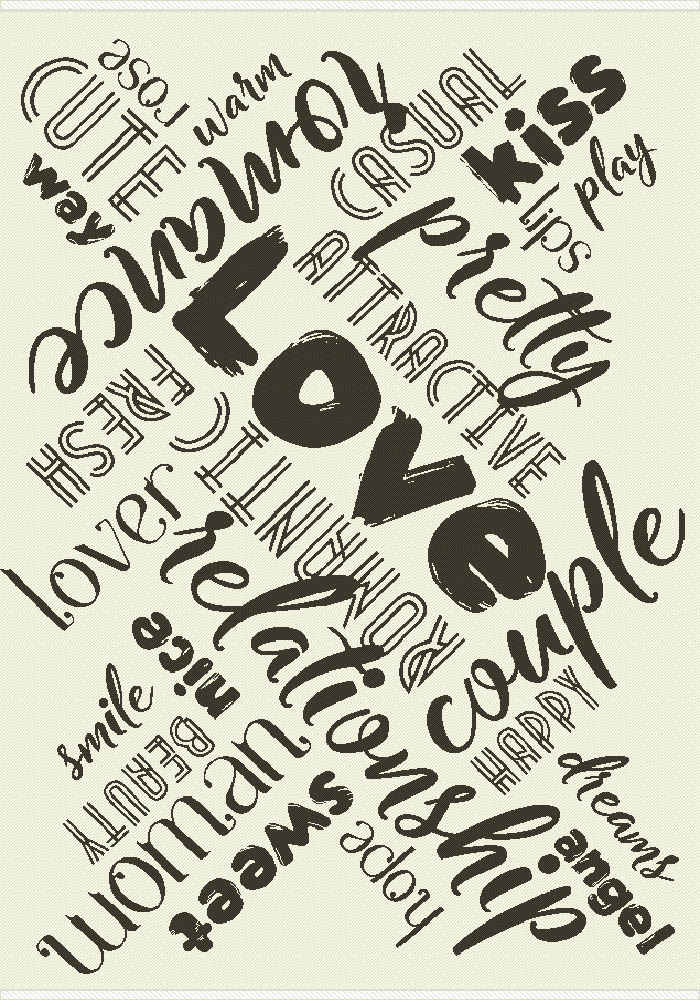 CUTE
rose
warm
romance
CASUAL
kiss
way
play
lips
pretty
Love
ATTRACTIVE
FRESH
ROMANTIC
lover
relationship
couple
nice
smile
BEAUTY
HAPPY
woman
sweet
dreams
hope
angel